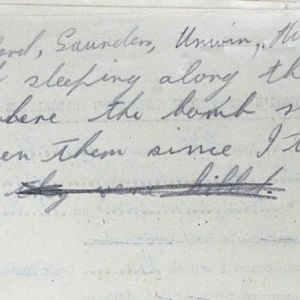 Saunders, Unwin,
sleeping along th
where the bomb s
en them since I t
they were killed.